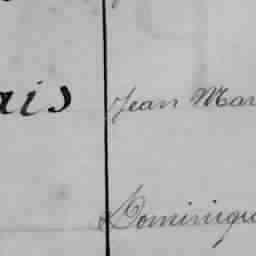 ais Jean Mar
Dominiqu